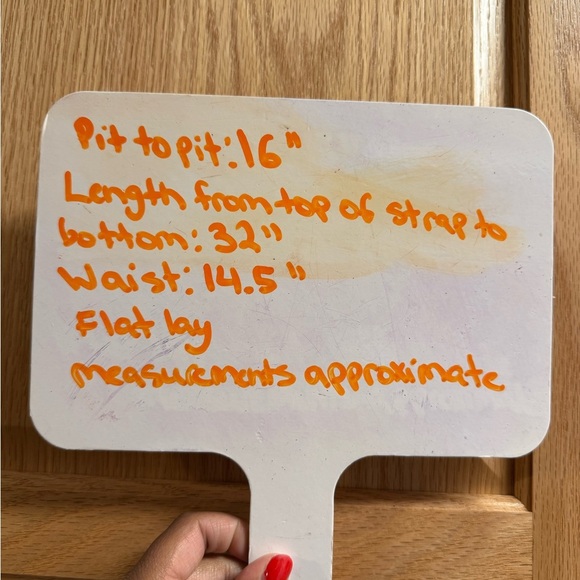 Pit to pit: 16"
Length from top of strap to
bottom: 32"
Waist: 14.5"
Flat lay
measurements approximate